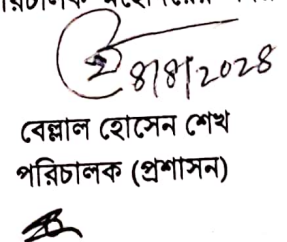 ৪/৪/২০২৪
বেল্লাল হোসেন শেখ
পরিচালক (প্রশাসন)